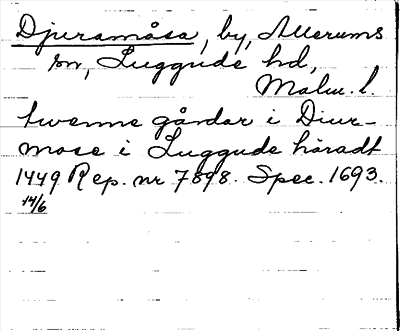 Djuramåsa, by, Allerums
sn, Luggude hd,
Malm. l.
twenne gårdar i Diur-
mose i Luggude häradt
1449 Rep. nr 7898. Spec. 1693.
14/6